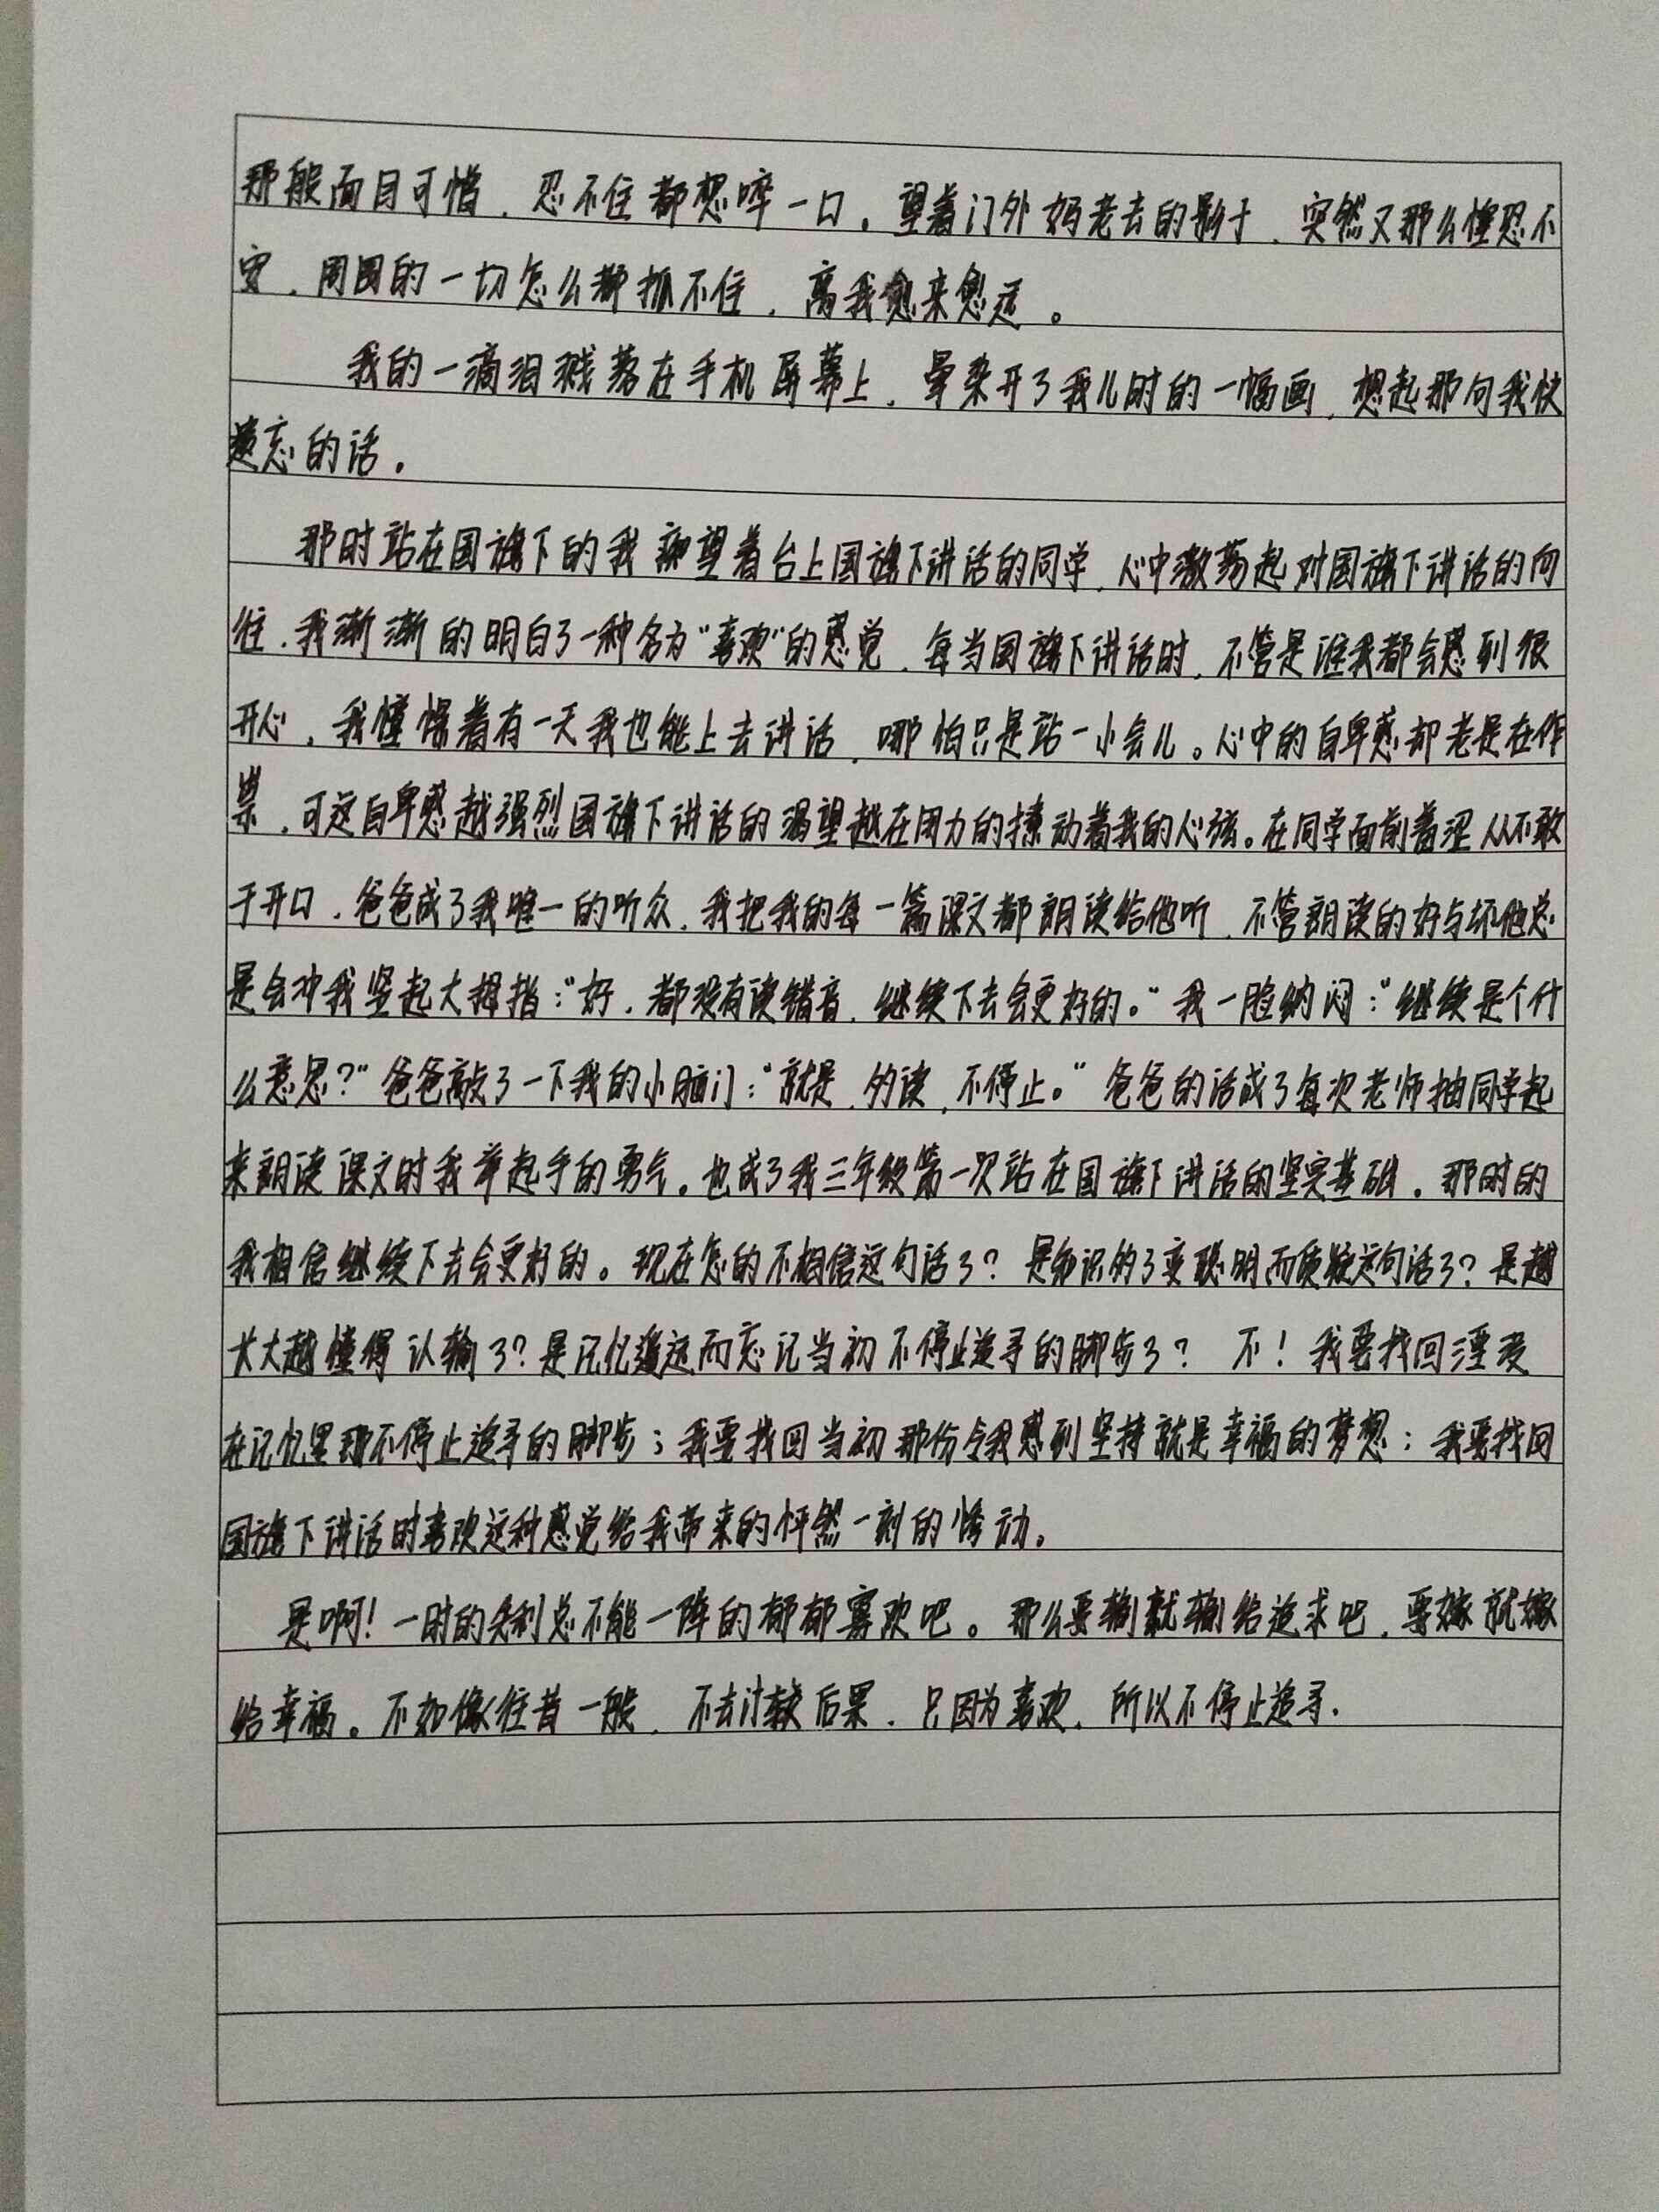 那般面目可憎，忍不住都想啐一口。望着门外妈老去的影子，突然又那么惶恐不
安，周围的一切怎么都抓不住，离我愈来愈远。
我的一滴泪溅落在手机屏幕上，晕染开了我儿时的一幅画，想起那句我快
遗忘的话。
那时站在国旗下的我痴望着台上国旗下讲话的同学，心中激荡起对国旗下讲话的向
往，我渐渐的明白了一种名为“喜欢”的感觉，每当国旗下讲话时，不管是谁我都会感到很
开心，我憧憬着有一天我也能上去讲话，哪怕只是站一小会儿。心中的自卑感却老是在作
祟，可这自卑感越强烈国旗下讲话的渴望越在用力的撩动着我的心弦。在同学面前羞涩从不敢
于开口，爸爸成了我唯一的听众，我把我的每一篇课文都朗读给他听，不管朗读的好与坏他总
是会冲我竖起大拇指：“好，都没有读错音，继续下去会更好的。”我一脸纳闷：“继续是个什
么意思？”爸爸敲了一下我的小脑门：“就是，多读，不停止。”爸爸的话成了每次老师抽同学起
来朗读课文时我举起手的勇气。也成了我三年级第一次站在国旗下讲话的坚实基础。那时的
我相信继续下去会更好的。现在怎的不相信这句话了？是知识多了变聪明而质疑这句话了？是越
长大越懂得认输了？是记忆遥远而忘记当初不停止追寻的脚步了？不！我要找回湮没
在记忆里那不停止追寻的脚步；我要找回当初那份令我感到坚持就是幸福的梦想；我要找回
国旗下讲话时喜欢这种感觉给我带来的怦然一刻的悸动。
是啊！一时的失利总不能一阵的郁郁寡欢吧。那么要输就输给追求吧，要嫁就嫁
给幸福。不如像往昔一般，不去计较后果，只因为喜欢，所以不停止追寻.